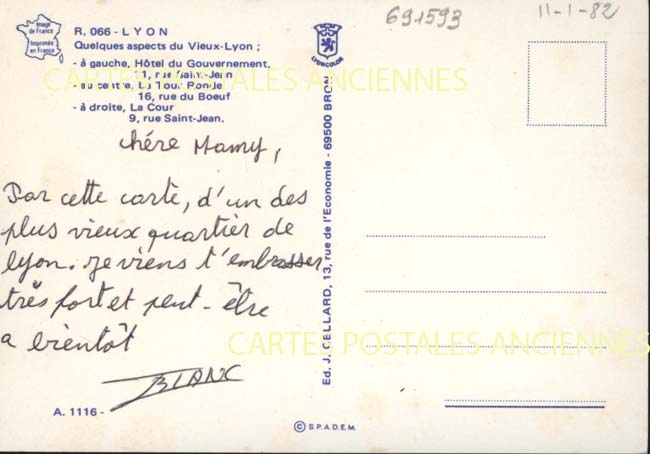 Image
de France
Imprimée
en France
R. 066 - LYON
Quelques aspects du Vieux-Lyon ;
- à gauche, Hôtel du Gouvernement,
1, rue Saint-Jean
- au centre, La Tour Ronde
16, rue du Boeuf
- à droite, La Cour
9, rue Saint-Jean.
LYONCOLOR
691593
11-1-82
CARTES POSTALES ANCIENNES
chére Mamy,
Par cette carte, d'un des
plus vieux quartier de
lyon. je viens t'embrasser
très fort et peut-être
a bientôt
BLANC
Ed. J. CELLARD, 13, rue de l'Economie - 69500 BRON
CARTES POSTALES ANCIENNES
A. 1116 -
© S.P.A.D.E.M.